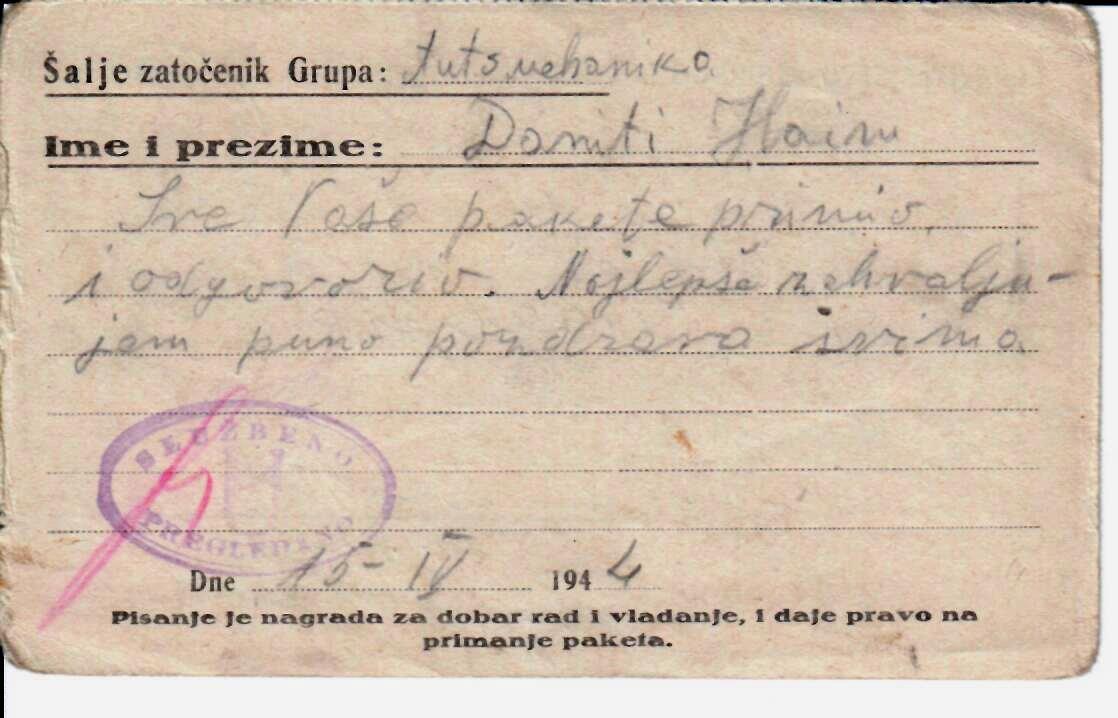 Šalje zatočenik Grupa: Autsmehanika
Ime i prezime: Daniti Haim
Sve Vaše pakete primio
i odgovorio. Najlepše zahvalju-
jem puno pozdrava svima
SLUŽBENO
PREGLEDANO
Dne 15-IV 1944
Pisanje je nagrada za dobar rad i vladanje, i daje pravo na
primanje paketa.